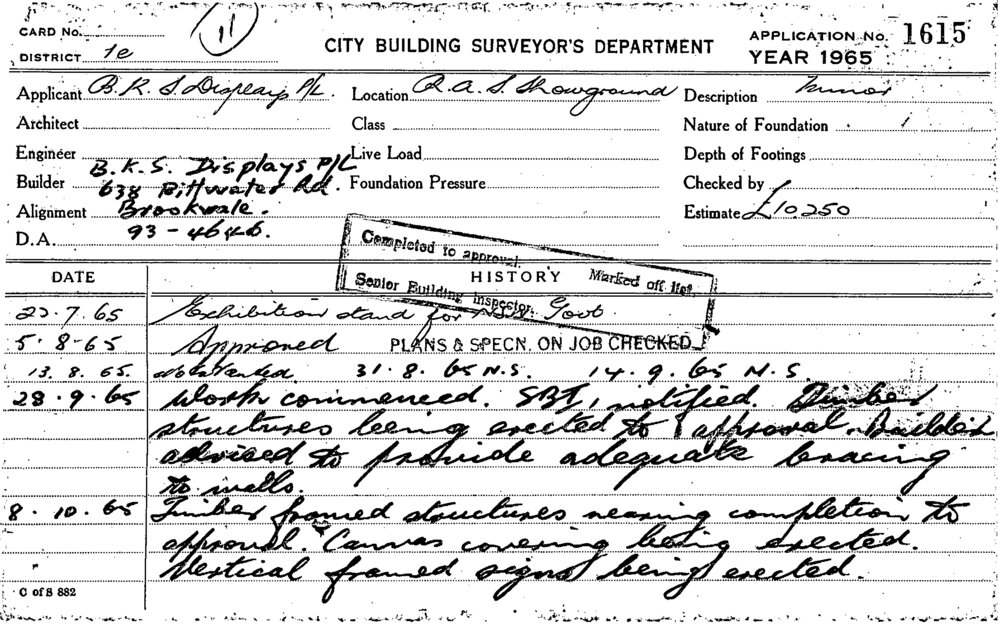 CARD No.
11
DISTRICT 1e
CITY BUILDING SURVEYOR'S DEPARTMENT
APPLICATION No. 1615
YEAR 1965
Applicant B.K.S. Displays P/L.
Location R.A.S. Showground
Description Minor
Architect
Class
Nature of Foundation
Engineer
Live Load
Depth of Footings
Builder B.K.S. Displays P/L
638 Pittwater Rd.
Brookvale.
93-4646.
Foundation Pressure
Checked by
Alignment
Estimate £10.250
D.A.
Completed to approval. Marked off list.
Senior Building Inspector.
DATE HISTORY
22.7.65 Exhibition stand for N.S.W. Govt
5.8.65 Approved PLANS & SPECN. ON JOB CHECKED
13.8.65. Not started. 31.8.65 N.S. 14.9.65 N.S.
28.9.65 Work commenced. SBI, notified. Timber
structures being erected to approval. Builder
advised to provide adequate bracing
to walls.
8.10.65 Timber framed structures nearing completion to
approval. Canvas covering being erected.
" Vertical framed signs being erected.
C of S 882